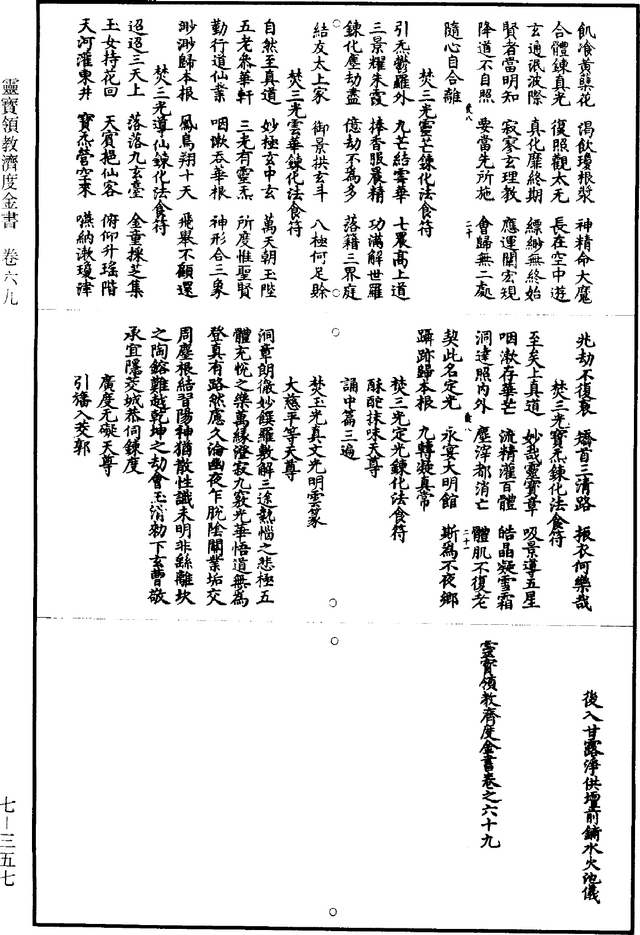 靈寶領教濟度金書　卷六九
飢飡黃蘗花　渴飲瓊根漿　神精命大魔
合體鍊真光　復照觀太无　長在空中遊
玄通汎波際　真化靡終期　縹緲無終始
賢者當明知　寂寂玄理教　應運闡宏規
降道不自照　要當先所施　會歸無二處
隨心自合離
焚三光靈芒鍊化法食符
引炁鬱羅外　九芒結雲華　七晨高上道
三景耀朱霞　捧香服晨精　功滿解世羅
鍊化塵劫盡　億劫不為多　落籍三界庭
結友太上家　御景拱玄斗　八極何足賒
焚三光雲華鍊化法食符
自然至真道　妙極玄中玄　萬天朝玉陛
五老叅華軒　三光有靈炁　所度惟聖賢
勤行道仙業　咽漱吞華根　神形合三象
渺渺歸本根　鳳鳥翔十天　飛舉不顧還
焚三光導仙鍊化法食符
迢迢三天上　落落九玄臺　金童採芝集
玉女持花回　天賓挹仙客　俯仰升瑤階
天河灌東井　寶炁營空來　嚥納漱瓊津
兆劫不復衰　矯首三清路　振衣何樂哉
焚三光寶炁鍊化法食符
至矣上真道　妙哉靈寶章　吸景導五星
咽漱存華芒　流精灌百體　皓晶凝雪霜
洞達照內外　塵滓都消亡　體肌不復老
契此名定光　永宴大明館　斯為不夜鄉
躡跡歸本根　九轉凝真常
焚三光定光鍊化法食符
酥酡抹味天尊
誦中篇三遍
焚玉光真文光明雲篆
大慈平等天尊
洞章朗徹妙饌羅敷解三途熱惱之悲極五
體充悅之樂萬緣澄寂九竅光華悟道無為
登真有路然應久淪幽夜乍脫陰關業垢交
周塵根結習陽神猶散性識未明非絲離坎
之陶鎔難越乾坤之劫會玉清勑下玄曹敬
承宜隱茭城恭伺鍊度
廣度无礙天尊
引旛入茭郭
後入甘露淨供壇前鏑水火池儀
靈寶領教濟度金書卷之六十九
七—三五七